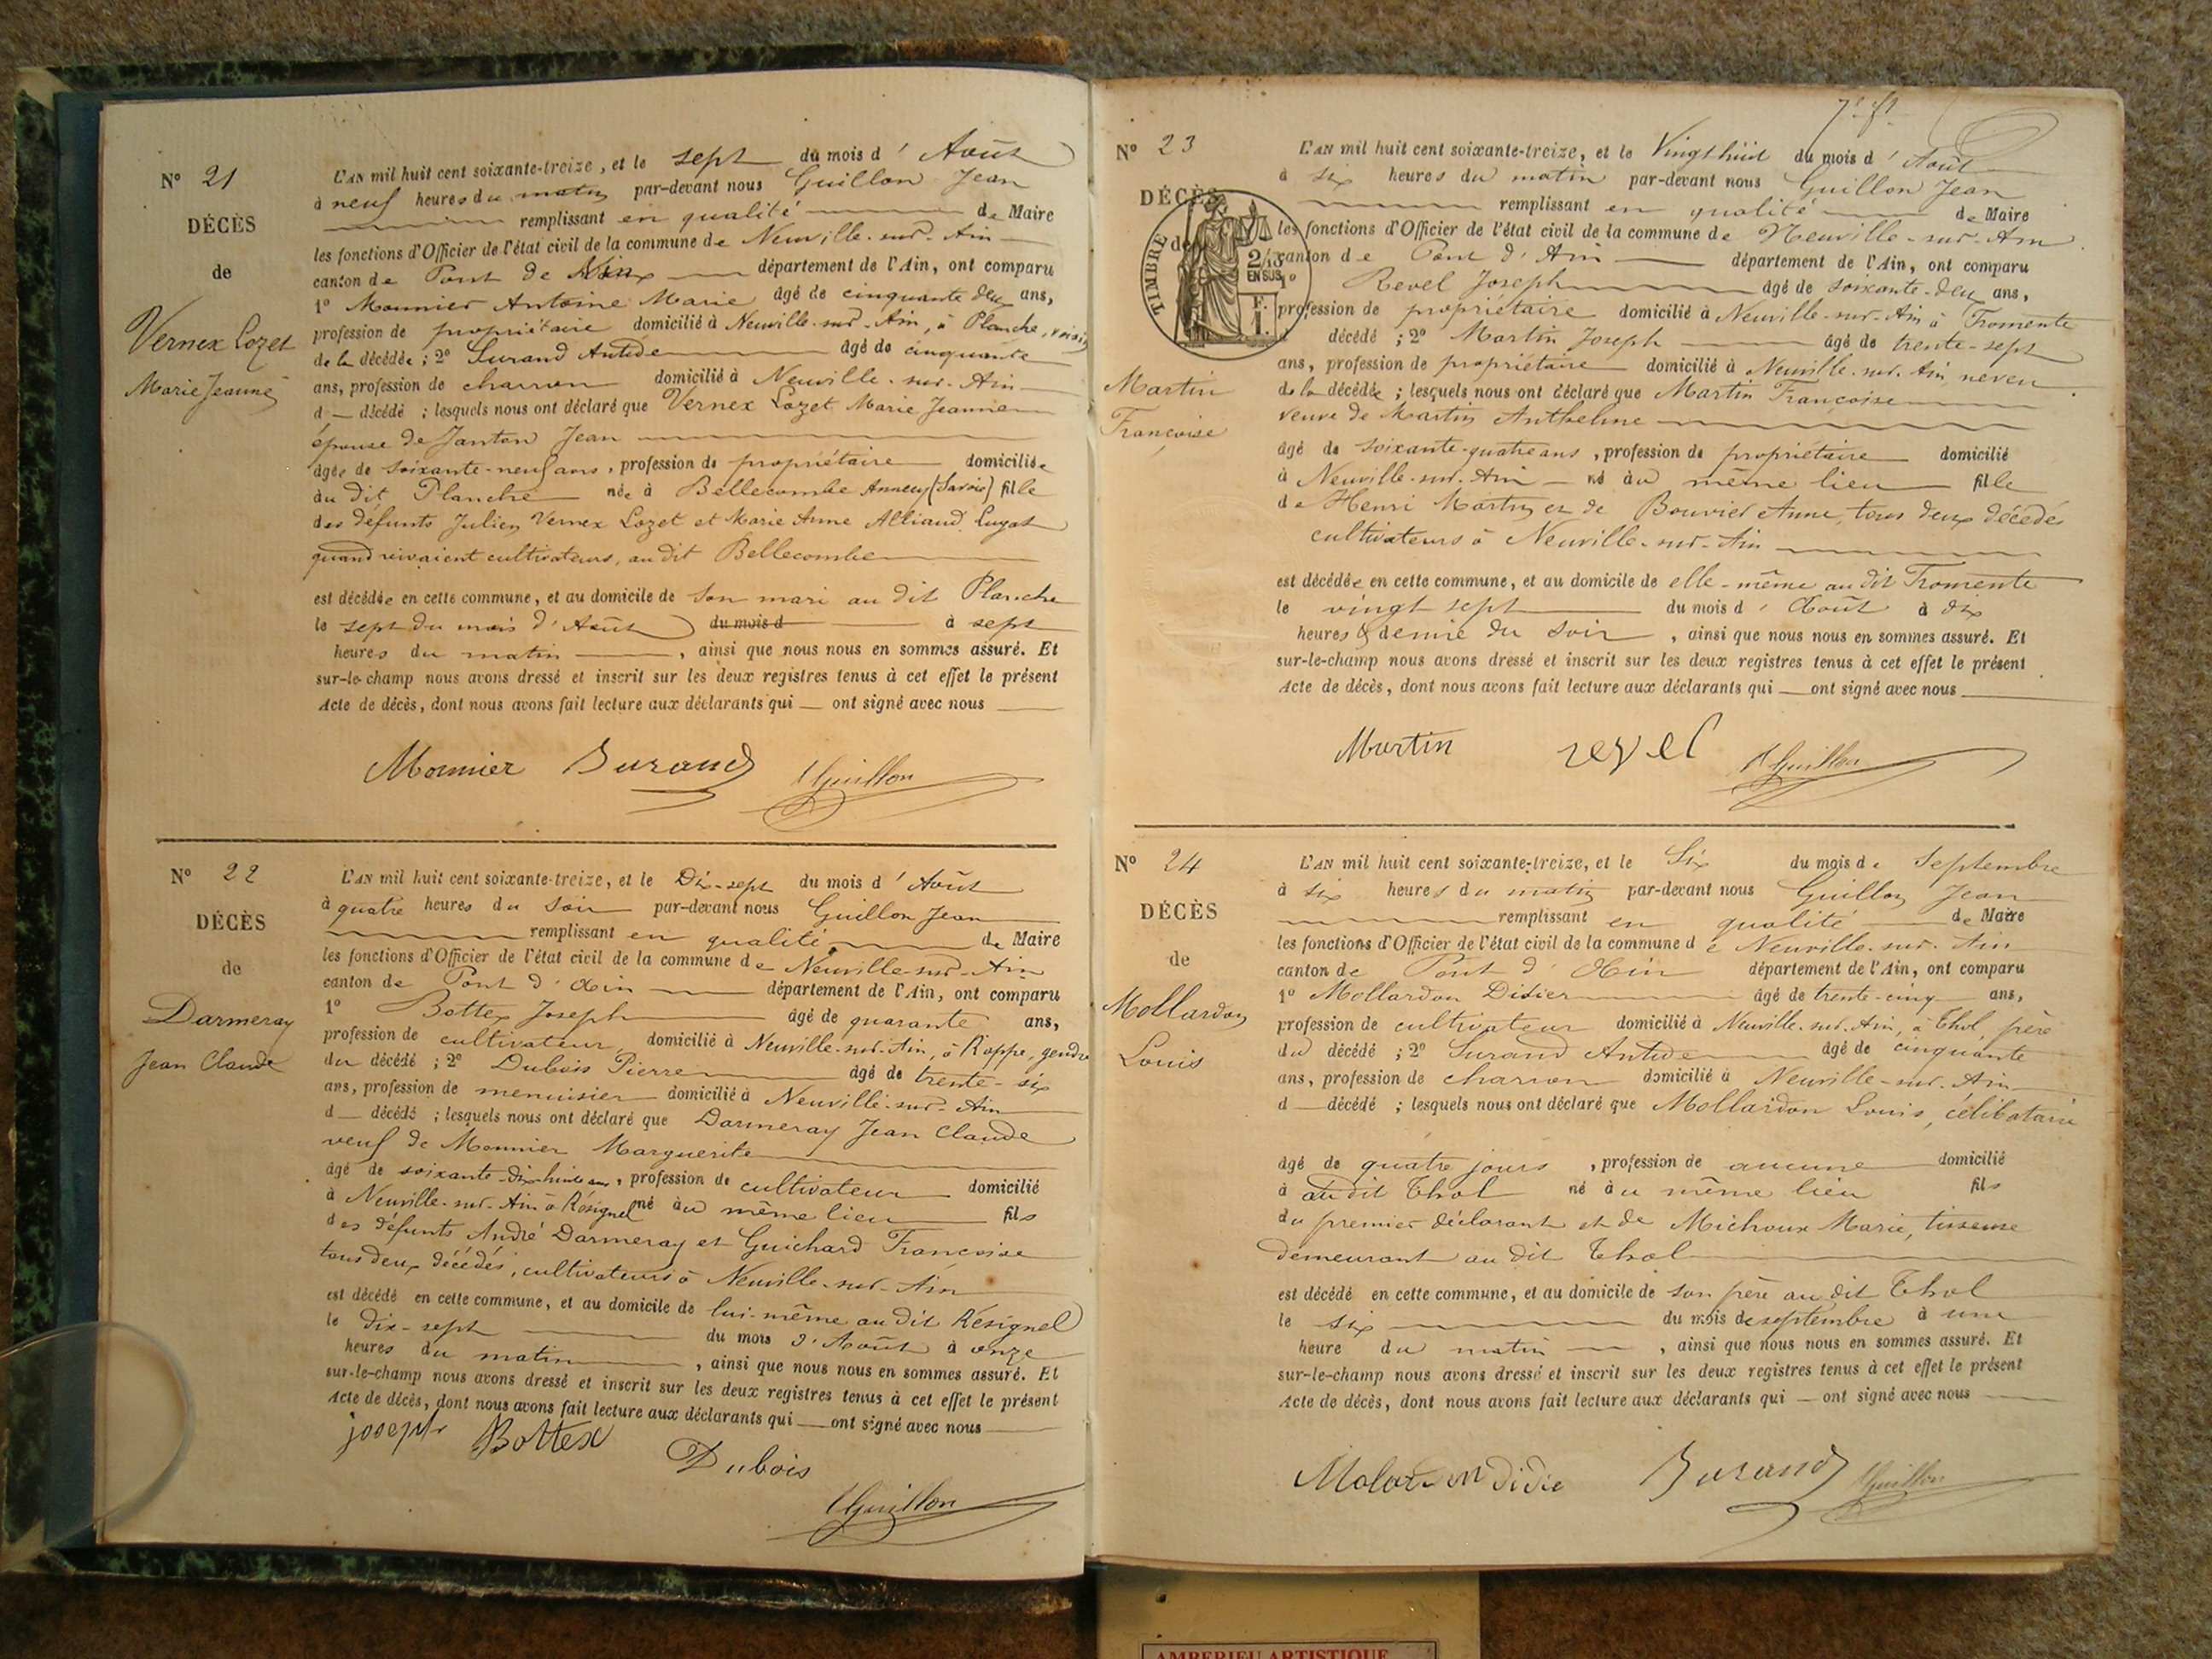 N° 21
DÉCÈS
de
Vernex Lozet
Marie Jeanne
L'AN mil huit cent soixante-treize, et le sept du mois d' Août
à neuf heures du matin par-devant nous Guillon Jean
remplissant en qualité de Maire
les fonctions d'Officier de l'état civil de la commune de Neuville-sur-Ain
canton de Pont de département de l'Ain, ont comparu
1° Monnier Antoine Marie âgé de cinquante deux ans,
profession de propriétaire domicilié à Neuville-sur-Ain, à Planche, voisin
de la décédée ; 2° Durand Antide âgé de cinquante
ans, profession de charron domicilié à Neuville-sur-Ain
d décédé ; lesquels nous ont déclaré que Vernex Lozet Marie Jeanne
épouse de Janton Jean
âgée de soixante-neuf ans, profession de propriétaire domiciliée
au dit Planche née à Bellecombe Annecy (Savoie) fille
des défunts Julien Vernex Lozet et Marie Anne Alliaud Lugat
quand vivaient cultivateurs, au dit Bellecombe
est décédée en cette commune, et au domicile de son mari au dit Planche
le sept du mois d'Août du mois d à sept
heures du matin, ainsi que nous nous en sommes assuré. Et
sur-le-champ nous avons dressé et inscrit sur les deux registres tenus à cet effet le présent
Acte de décès, dont nous avons fait lecture aux déclarants qui ont signé avec nous
Monnier Durand Guillon
N° 22
DÉCÈS
de
Darmeray
Jean Claude
L'AN mil huit cent soixante-treize, et le Dix-sept du mois d' Août
à quatre heures du soir par-devant nous Guillon Jean
remplissant en qualité de Maire
les fonctions d'Officier de l'état civil de la commune de Neuville-sur-Ain
canton de Pont d'Ain département de l'Ain, ont comparu
1° Bottex Joseph âgé de quarante ans,
profession de cultivateur domicilié à Neuville-sur-Ain, à Rappe, gendre
du décédé ; 2° Dubois Pierre âgé de trente-six
ans, profession de menuisier domicilié à Neuville-sur-Ain
d décédé ; lesquels nous ont déclaré que Darmeray Jean Claude
veuf de Monnier Marguerite
âgé de soixante-dix-huit ans, profession de cultivateur domicilié
à Neuville-sur-Ain à Résignel né au même lieu fils
des défunts André Darmeray et Guichard Françoise
tous deux décédés, cultivateurs à Neuville-sur-Ain
est décédé en cette commune, et au domicile de lui-même au dit Résignel
le dix-sept du mois d'Août à onze
heures du matin, ainsi que nous nous en sommes assuré. Et
sur-le-champ nous avons dressé et inscrit sur les deux registres tenus à cet effet le présent
Acte de décès, dont nous avons fait lecture aux déclarants qui ont signé avec nous
joseph Bottex
Dubois
Guillon
N° 23
DÉCÈS
de
TIMBRE
2/10
EN SUS
F.
1.
Martin
Françoise
L'AN mil huit cent soixante-treize, et le Vingt huit du mois d' Août
à six heures du matin par-devant nous Guillon Jean
remplissant en qualité de Maire
les fonctions d'Officier de l'état civil de la commune de Neuville-sur-Ain
canton de Pont d'Ain département de l'Ain, ont comparu
1° Revel Joseph âgé de soixante-deux ans,
profession de propriétaire domicilié à Neuville-sur-Ain à Fromente
décédé ; 2° Martin Joseph âgé de trente-sept
ans, profession de propriétaire domicilié à Neuville-sur-Ain neveu
de la décédée ; lesquels nous ont déclaré que Martin Françoise
veuve de Martin Anthelme
âgé de soixante-quatre ans, profession de propriétaire domicilié
à Neuville-sur-Ain né au même lieu fille
de Henri Martin et de Bouvier Anne, tous deux décédés
cultivateurs à Neuville-sur-Ain
est décédée en cette commune, et au domicile de elle-même au dit Fromente
le vingt sept du mois d' Août à dix
heures & demie du soir, ainsi que nous nous en sommes assuré. Et
sur-le-champ nous avons dressé et inscrit sur les deux registres tenus à cet effet le présent
Acte de décès, dont nous avons fait lecture aux déclarants qui ont signé avec nous
Martin revel Guillon
N° 24
DÉCÈS
de
Mollardon
Louis
L'AN mil huit cent soixante-treize, et le Six du mois de Septembre
à six heures du matin par-devant nous Guillon Jean
remplissant en qualité de Maire
les fonctions d'Officier de l'état civil de la commune de Neuville-sur-Ain
canton de Pont d'Ain département de l'Ain, ont comparu
1° Mollardon Didier âgé de trente-cinq ans,
profession de cultivateur domicilié à Neuville-sur-Ain, à Thol, père
du décédé ; 2° Durand Antide âgé de cinquante
ans, profession de charron domicilié à Neuville-sur-Ain
d décédé ; lesquels nous ont déclaré que Mollardon Louis, célibataire
âgé de quatre jours, profession de aucune domicilié
à au dit Thol né au même lieu fils
du premier déclarant et de Michoux Marie, tisseuse
demeurant au dit Thol
est décédé en cette commune, et au domicile de son père au dit Thol
le six du mois de septembre à une
heure du matin, ainsi que nous nous en sommes assuré. Et
sur-le-champ nous avons dressé et inscrit sur les deux registres tenus à cet effet le présent
Acte de décès, dont nous avons fait lecture aux déclarants qui ont signé avec nous
didie Durand Guillon
AMBERIEU ARTISTIQUE